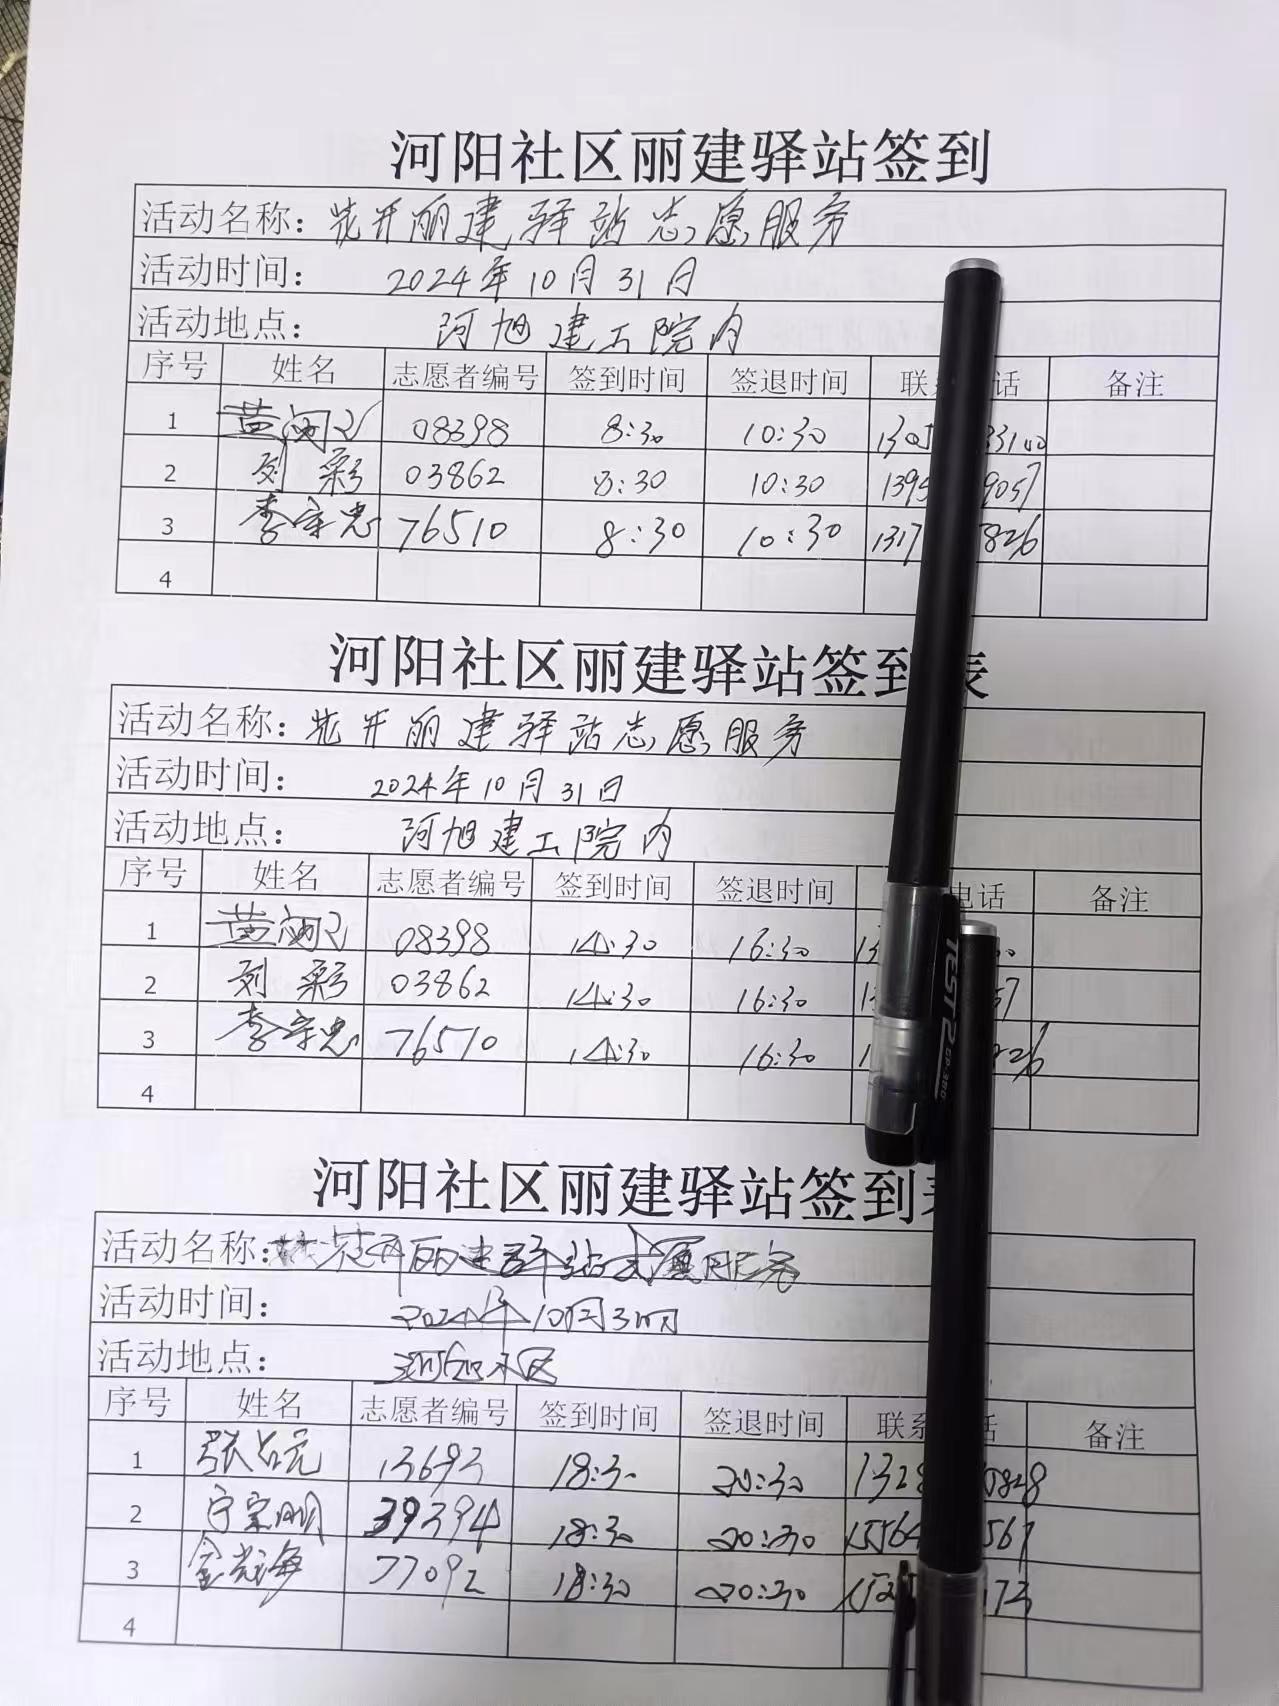 河阳社区丽建驿站签到
活动名称：花开丽建驿站志愿服务
活动时间：2024年10月31日
活动地点：河旭建工院内
序号 姓名 志愿者编号 签到时间 签退时间 联 话 备注
1 08398 8:30 10:30
2 刘彩 03862 8:30 10:30 9057
3 李宗忠 76510 8:30 10:30 1317 826
4
河阳社区丽建驿站签到表
活动名称：花开丽建驿站志愿服务
活动时间：2024年10月31日
活动地点：河旭建工院内
序号 姓名 志愿者编号 签到时间 签退时间 电话 备注
1 08398 14:30 16:30
2 刘彩 03862 14:30 16:30
3 李宗忠 76510 14:30 16:30 826
4
TEST2 GP-380
河阳社区丽建驿站签到
活动名称：花开丽建驿站志愿服务
活动时间：2024年10月31日
活动地点：
序号 姓名 志愿者编号 签到时间 签退时间 联系 话 备注
1 13693 18:30 20:30 132 0828
2 39394 18:30 20:30 15564 567
3 77092 18:30 20:30 173
4